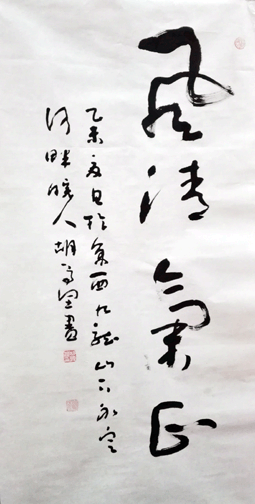 風清氣正
乙未夏日於京西九龍山下永定
河畔人胡書